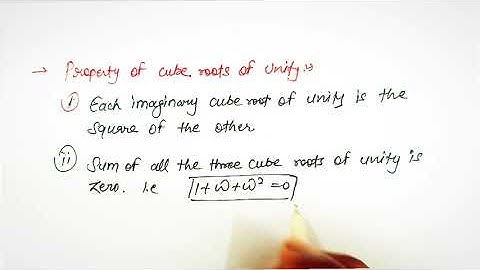 → Property of cube roots of unity:-
i Each imaginary cube root of unity is the
square of the other
ii Sum of all the three cube roots of unity is
zero. i.e 1+ω+ω²=0